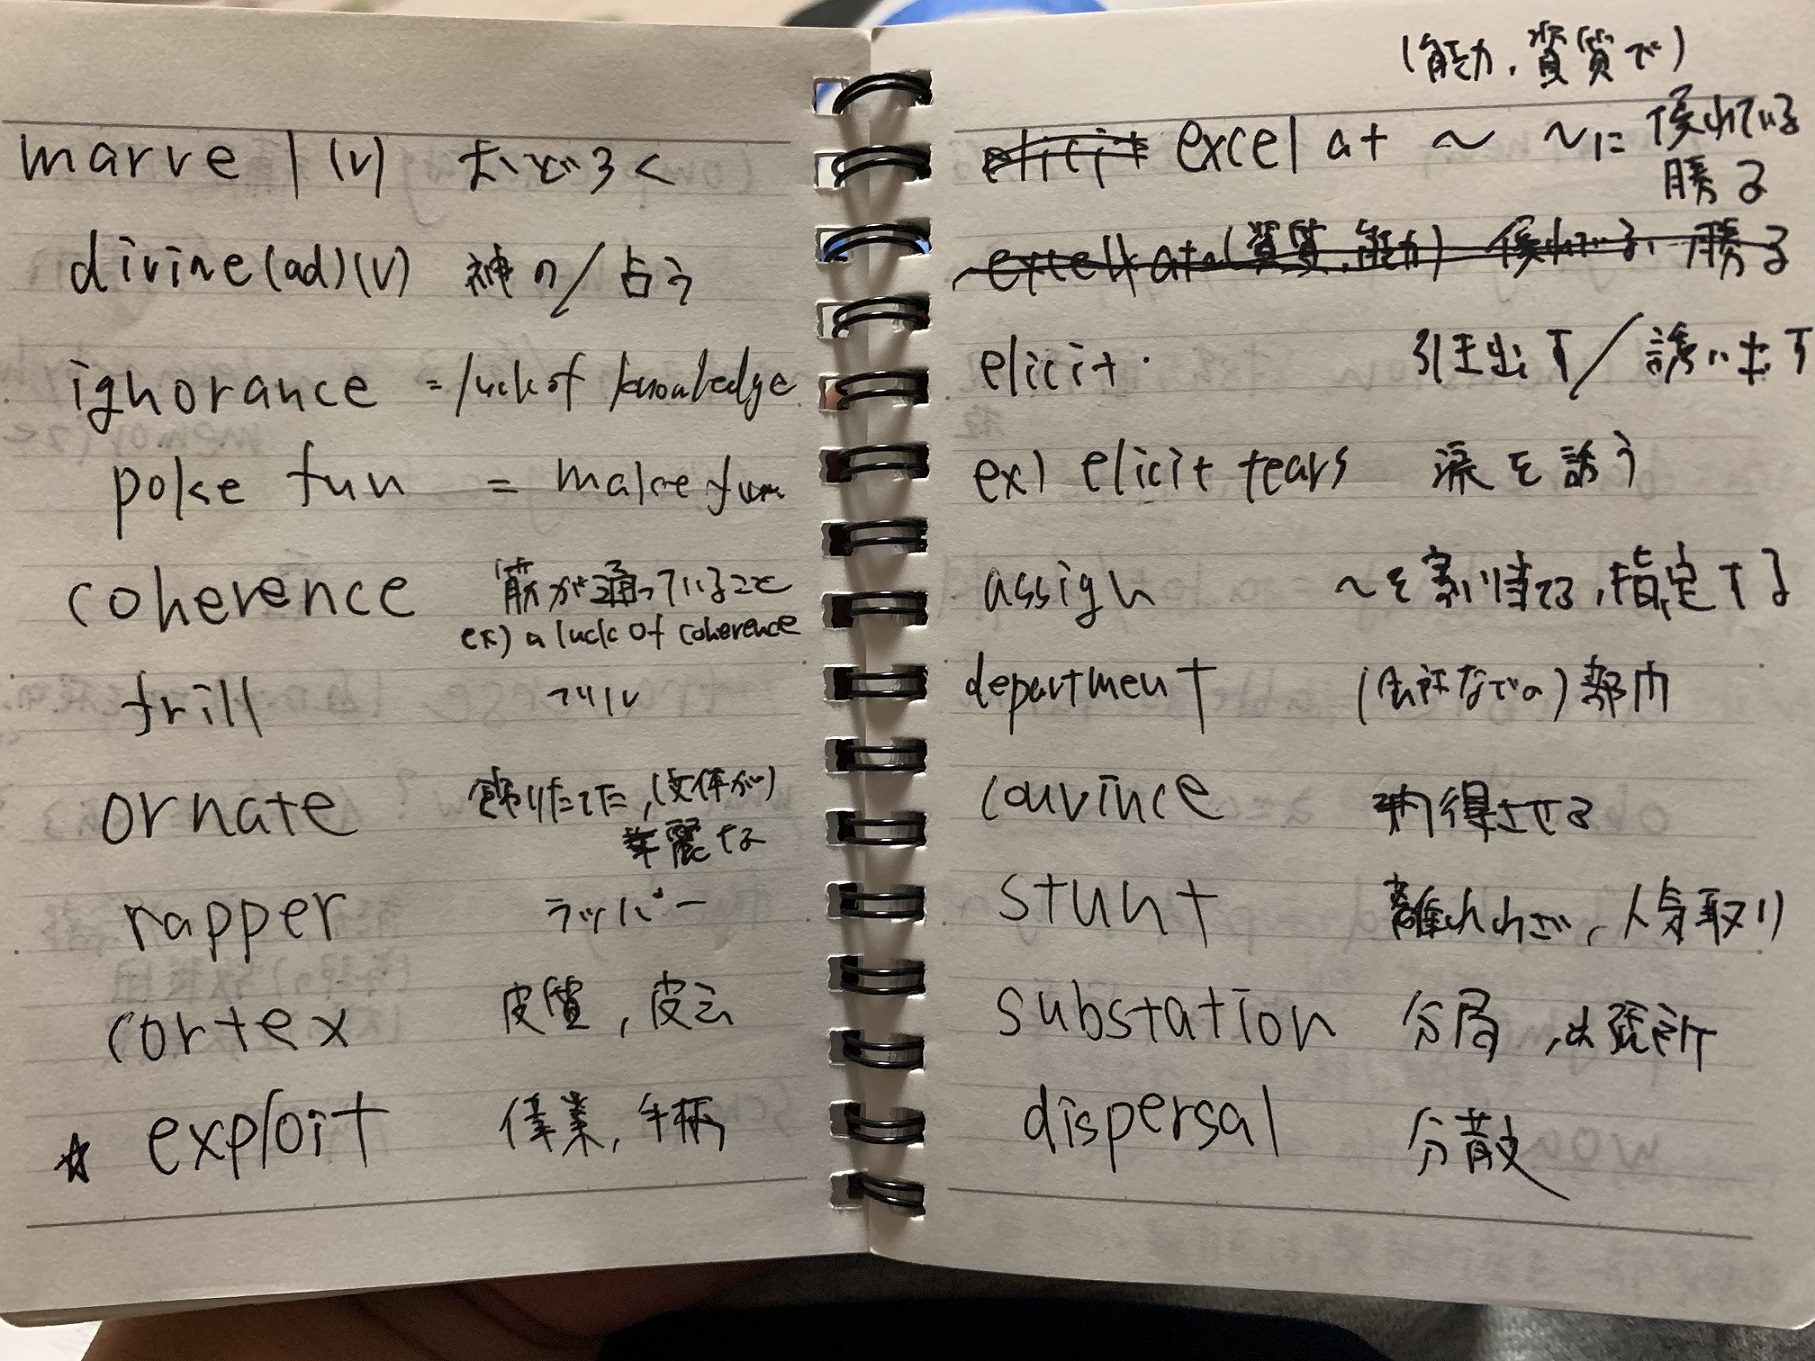 marvel (v) おどろく
divine (ad)(v) 神の/占う
ignorance = luck of knowledge
poke fun = make fun
coherence 筋が通っていること
ex) a luck of coherence
frill フリル
ornate 飾りたてた,(文体が)
華麗な
rapper ラッパー
cortex 皮質,皮云
☆ exploit 偉業,手柄
(能力,資質で)
elicit excel at ~ ~に優れている
勝る
excell at (資質,能力) 優れている 勝る
elicit 引き出す/誘い出す
ex) elicit tears 涙を誘う
assign ~を割り当てる,指定する
department (会社などの)部門
convince 納得させる
stunt 離れわざ,人気取り
substation 分局,出張所
dispersal 分散